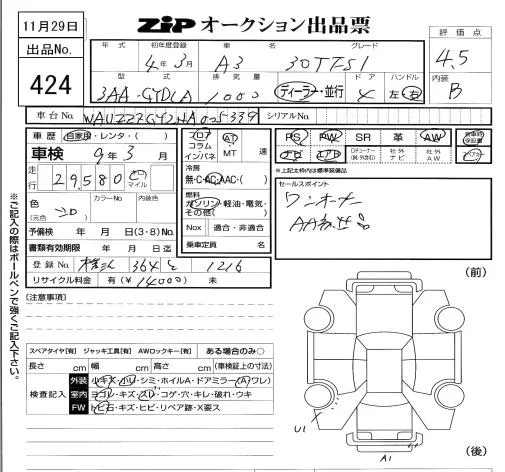 11月29日
ZIP オークション出品票
出品No.
424
評価点
4.5
内装
B
年式 初年度登録 車名 グレード
4年3月 A3 30TFSI
型式 排気量 ドア ハンドル
3AA-GYDLA 1000 ディーラー・並行 4 左・右
車台No. シリアルNo.
車歴 自家用・レンタ・( )
車検 9年3月
走行 29580 キロ マイル
色 (元色) カラーNo. 内装色
予備検 年 月 日(3・8)No.
書類有効期限 年 月 日迄
フロア コラム インパネ
AT MT 速
冷房
無・C・AC・AAC・( )
燃料
ガソリン・軽油・電気・その他( )
Nox 適合・非適合
乗車定員 名
PS PW SR 革 AW
ナビ エアB Dチューナー 社外ナビ 社外AW
新車時保証書
※上記太枠内は標準装備品
セールスポイント
ワンオーナー
登録No. 364 1216
リサイクル料金 有(¥14000) 未
[注意事項]
(前)
スペアタイヤ[有] ジャッキ工具[有] AWロックキー[有] ある場合のみ○
長さ cm 幅 cm 高さ cm (車検証上の寸法)
検査記入
外装 小キズ・小凹・シミ・ホイルA・ドアミラー(A)ワレ)
室内 ヨゴレ・キズ・スレ・コゲ・穴・キレ・破れ・ウキ
FW トビ石・キズ・ヒビ・リペア跡・X要ス
U1
A1
(後)
※ご記入の際はボールペンで強くご記入下さい。